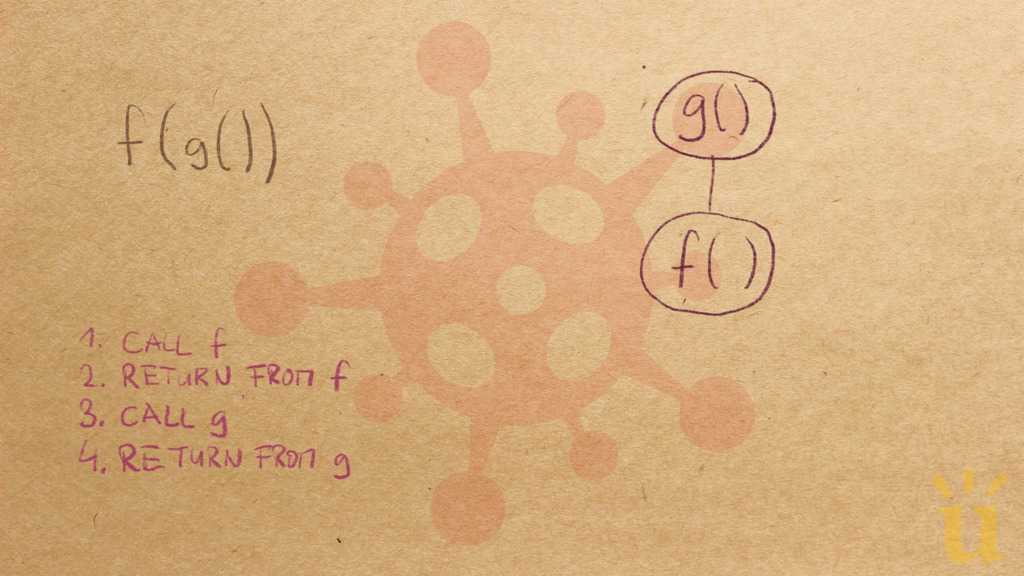 f(g())
g()
f( )
1. CALL f
2. RETURN FROM f
3. CALL g
4. RETURN FROM g
ü